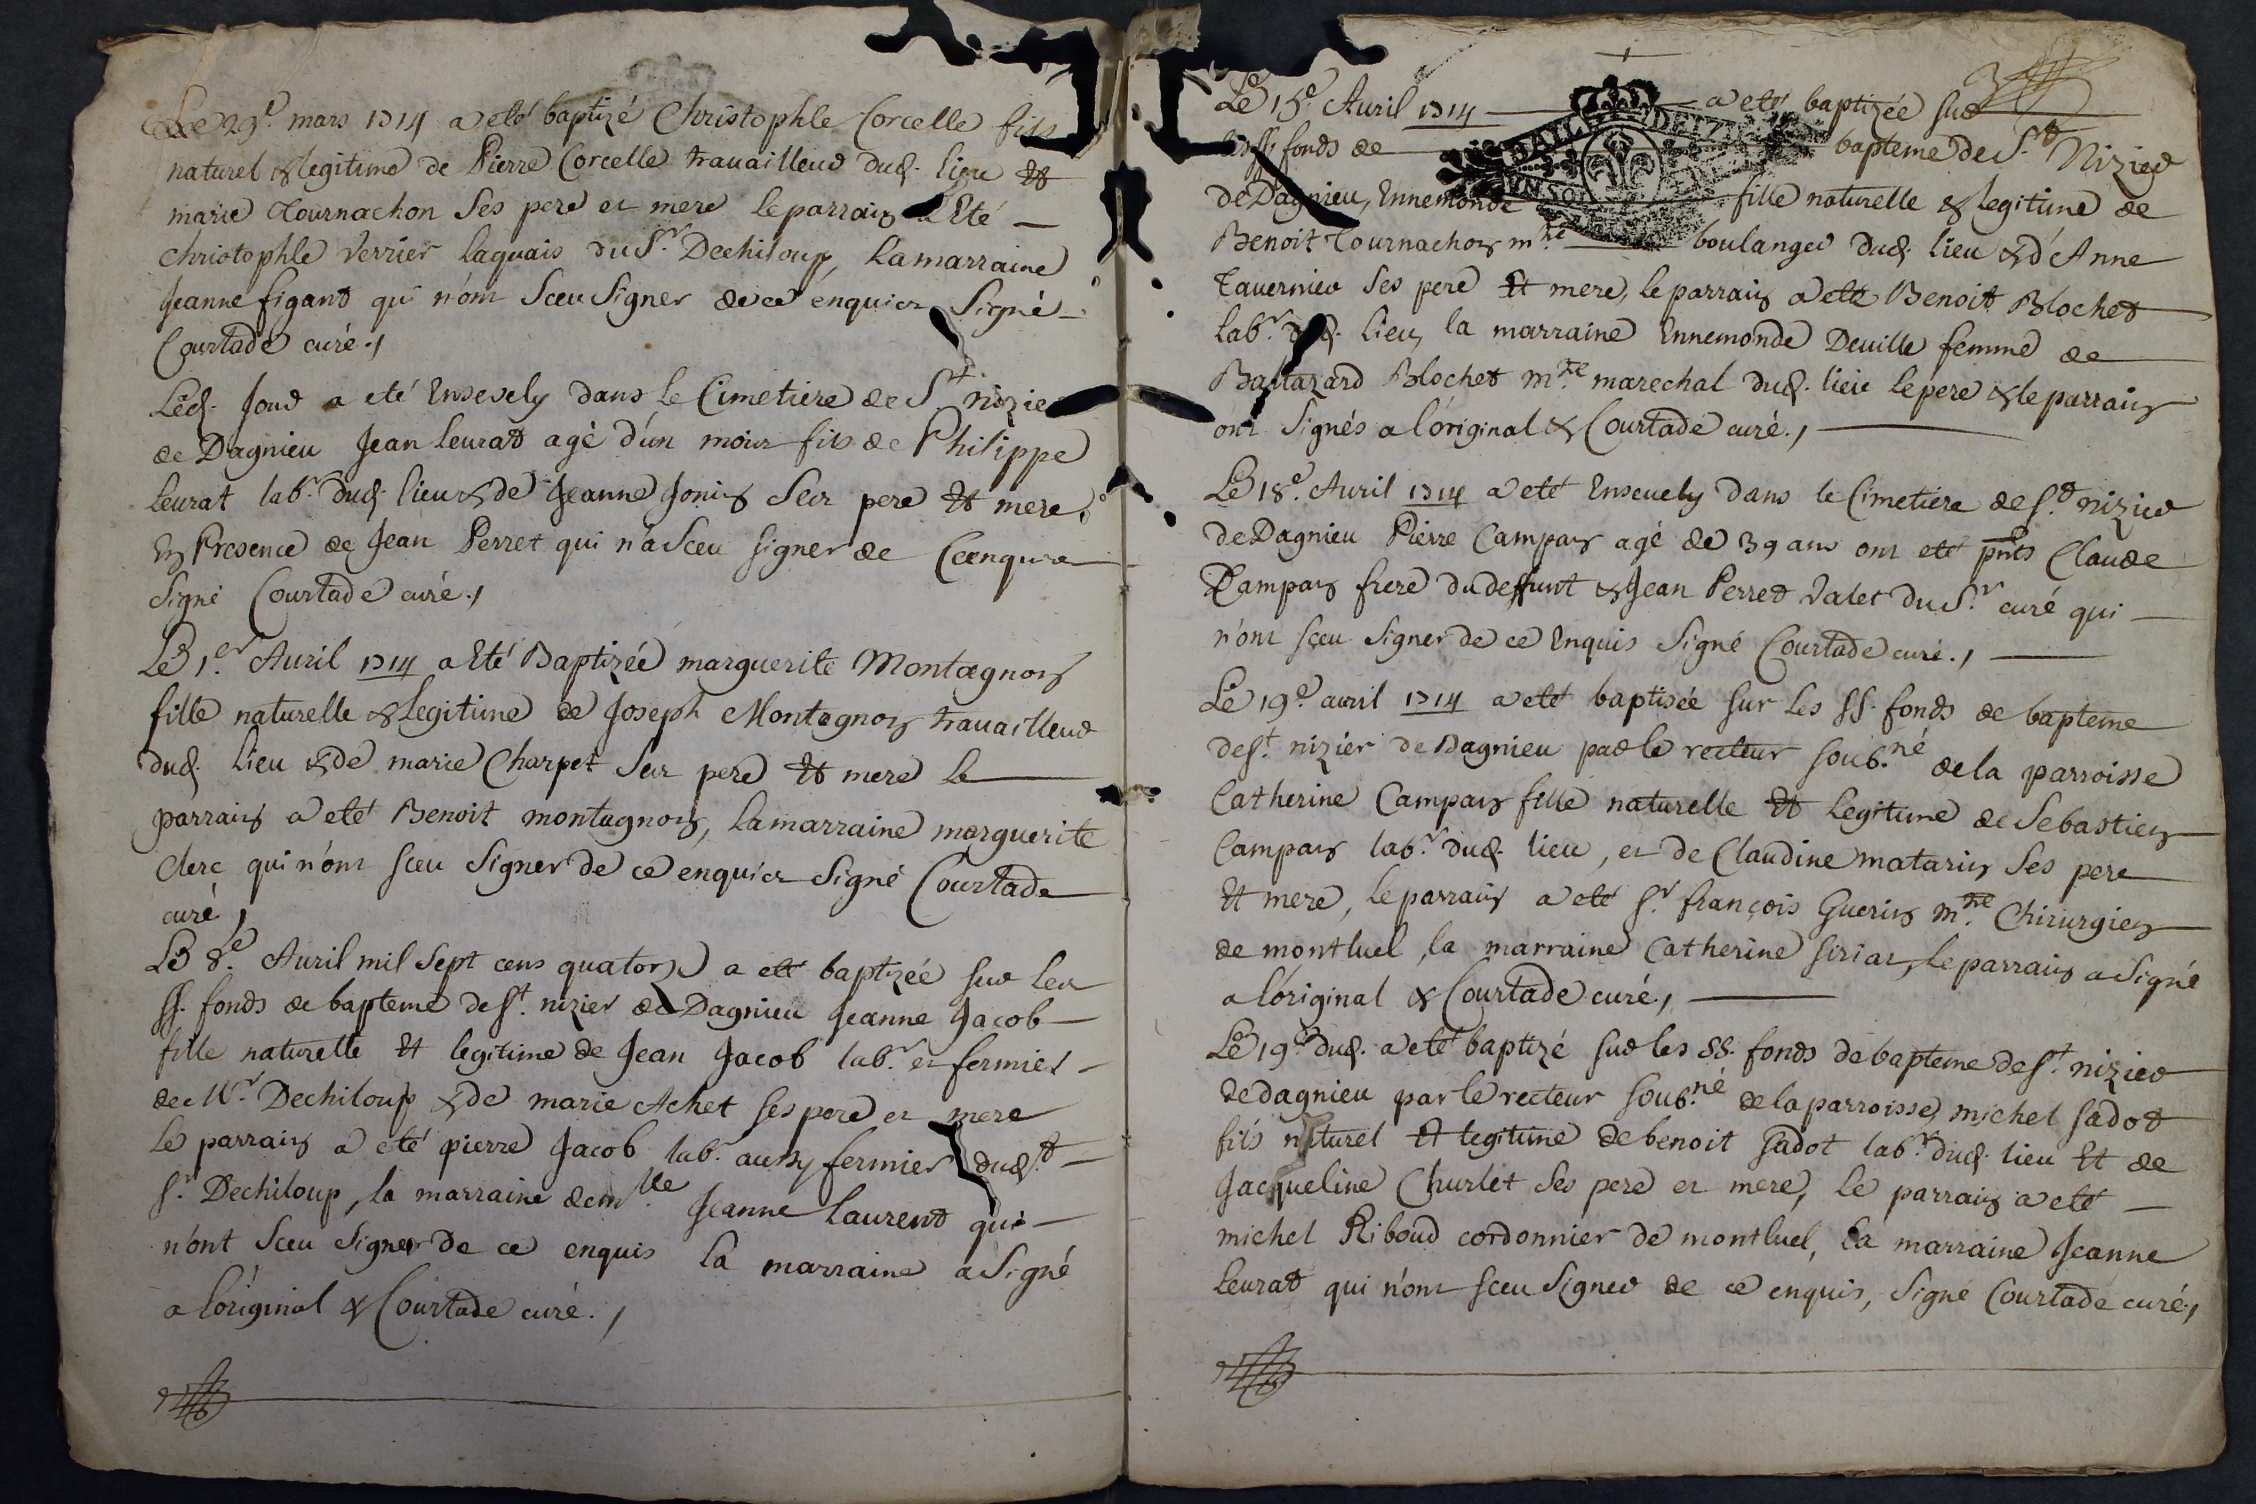 Le 29e. mars 1714 a eté baptizé Christophle Corcelle fils
naturel & legitime de Pierre Corcelle travailleur dud. lieu et
marie Tournachon ses pere et mere le parrain a Eté
christophle Verrier laquais du Sr. Dechiloup, La marraine
Jeanne figant qui n'ont sceu signer de ce enquier signé
Courtade curé./
Led. Jour a eté Ensevely dans le Cimetiere de St. nizier
de Dagnieu Jean leurat agé d'un moix fils de Philippe
leurat labr. dud. lieu & de Jeanne Jonin ser pere et mere,
En Presence de Jean Perret qui n'a sceu signer de Ce enquis
signé Courtade curé./
Le 1er. Auril 1714 a Eté Baptizée marguerite Montagnon
fille naturelle & legitime de Joseph Montagnon travailleur
dud. lieu & de marie Charpet ser pere et mere le
parrain a eté Benoit montagnon, la marraine marguerite
Clerc qui n'ont sceu signer de ce enquier signé Courtade
curé /
Le 8e. Auril mil sept cens quatorze a eté baptizée sur les
ss. fonds de bapteme de St. nizier de Dagnieu Jeanne Jacob
fille naturelle et legitime de Jean Jacob labr. et fermier
de Mr. Dechiloup & de marie Achet ses pere et mere
le parrain a eté pierre Jacob labr. aussy fermier dud.
sr. Dechiloup, la marraine demlle. Jeanne laurent qui
n'ont sceu signer de ce enquis la marraine a signé
a l'original & Courtade curé./
Le 15e. Auril 1714 a eté baptizée sur
les ss. fonds de bapteme de St. Nizier
de Dagnieu, Ennemonde fille naturelle & legitime de
Benoit Tournachon mtre boulanger dud. lieu & d'Anne
Tavernier ses pere et mere, le parrain a eté Benoit Blochet
labr. dud. lieu, la marraine Ennemonde Deville femme de
Baltazard Blochet mtre. marechal dud. lieu le pere & le parrain
ont signés a l'original & Courtade curé./
Le 18e. Auril 1714 a eté Ensevely dans le Cimetiere de St. nizier
de Dagnieu Pierre Campan agé de 39 ans ont eté pnts Claude
Campan frere du deffunt & Jean Perret valet du Sr. curé qui
n'ont sceu signer de ce Enquis signé Courtade curé./
Le 19e. avril 1714 a eté baptisée sur les ss. fonds de bapteme
de St. nizier de Dagnieu par le recteur soub.né de la parroisse
Catherine Campan fille naturelle et Legitime de Sebastien
Campan labr. dud. lieu, et de Claudine matarin ses pere
et mere, le parrain a eté sr. françois Guerin mtre. Chirurgien
de montluel, la marraine Catherine siriat, le parrain a signé
a l'original & Courtade curé./
Le 19e. dud. a eté baptizé sur les ss. fonds de bapteme de St. nizier
de dagnieu par le recteur soub.né de la parroisse, michel sadot
fils naturel et legitime de benoit sadot labr. dud. lieu et de
Jacqueline Churlet ses pere et mere, le parrain a eté
michel Riboud cordonnier de montluel, la marraine Jeanne
leurat qui n'ont sceu signer de ce enquis, signé Courtade curé./